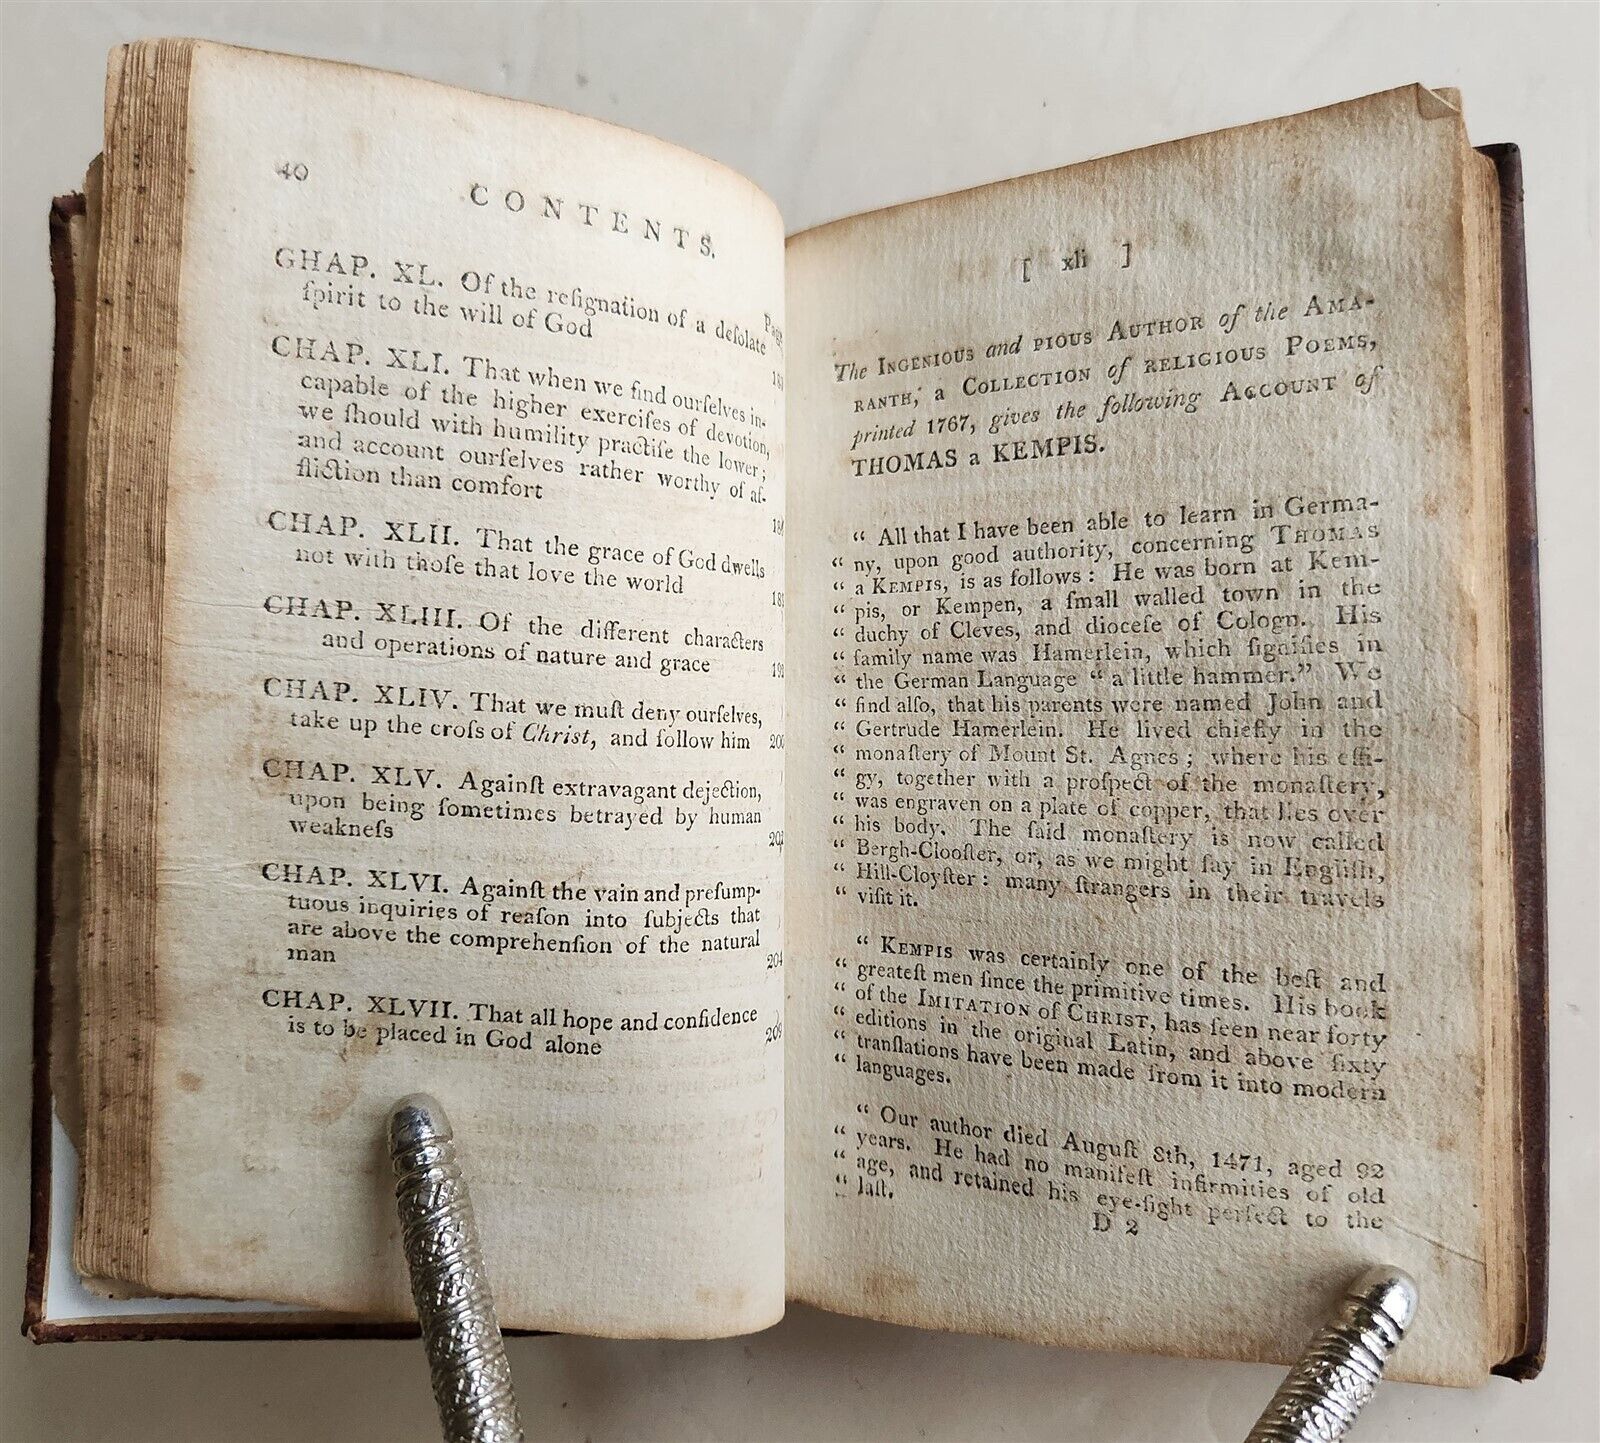 40
CONTENTS.
Page
GHAP. XL. Of the reſignation of a deſolate
ſpirit to the will of God
CHAP. XLI. That when we find ourſelves in-
capable of the higher exerciſes of devotion,
we ſhould with humility practiſe the lower;
and account ourſelves rather worthy of af-
fliction than comfort
CHAP. XLII. That the grace of God dwells
not with thoſe that love the world
CHAP. XLIII. Of the different characters
and operations of nature and grace
CHAP. XLIV. That we muſt deny ourſelves,
take up the croſs of Chriſt, and follow him 200
CHAP. XLV. Againſt extravagant dejection,
upon being ſometimes betrayed by human
weakneſs
CHAP. XLVI. Againſt the vain and preſump-
tuous inquiries of reaſon into ſubjects that
are above the comprehenſion of the natural
man 204
CHAP. XLVII. That all hope and confidence
is to be placed in God alone 209
[ xli ]
The INGENIOUS and PIOUS AUTHOR of the AMA-
RANTH, a COLLECTION of RELIGIOUS POEMS,
printed 1767, gives the following ACCOUNT of
THOMAS a KEMPIS.
“ All that I have been able to learn in Germa-
“ ny, upon good authority, concerning THOMAS
“ a KEMPIS, is as follows: He was born at Kem-
“ pis, or Kempen, a ſmall walled town in the
“ duchy of Cleves, and dioceſe of Cologn. His
“ family name was Hamerlein, which ſignifies in
“ the German Language “ a little hammer.” We
“ find alſo, that his parents were named John and
“ Gertrude Hamerlein. He lived chiefly in the
“ monaſtery of Mount St. Agnes; where his effi-
“ gy, together with a proſpect of the monaſtery,
“ was engraven on a plate of copper, that lies over
“ his body. The ſaid monaſtery is now called
“ Bergh-Clooſter, or, as we might ſay in Engliſh,
“ Hill-Cloyſter: many ſtrangers in their travels
“ viſit it.
“ KEMPIS was certainly one of the beſt and
“ greateſt men ſince the primitive times. His book
“ of the IMITATION of CHRIST, has ſeen near forty
“ editions in the original Latin, and above ſixty
“ tranſlations have been made from it into modern
“ languages.
“ Our author died Auguſt 8th, 1471, aged 92
“ years. He had no manifeſt infirmities of old
“ age, and retained his eye-ſight perfect to the
“ laſt.
D 2